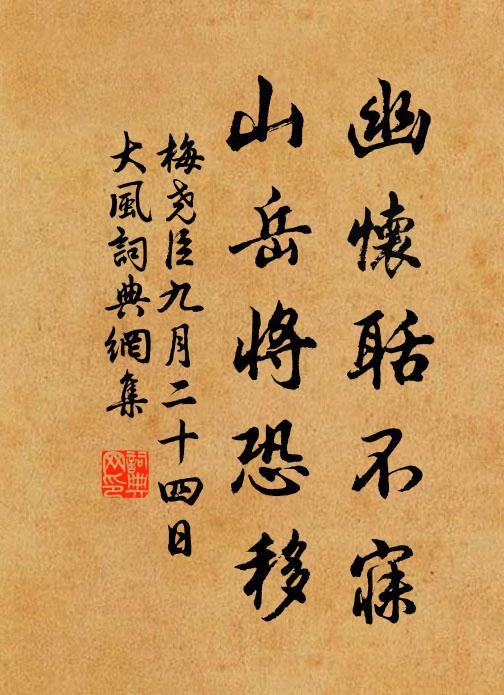 幽懷聒不寐
山岳將恐移
梅堯臣九月二十四日
大風詞典網集
詞典
网印